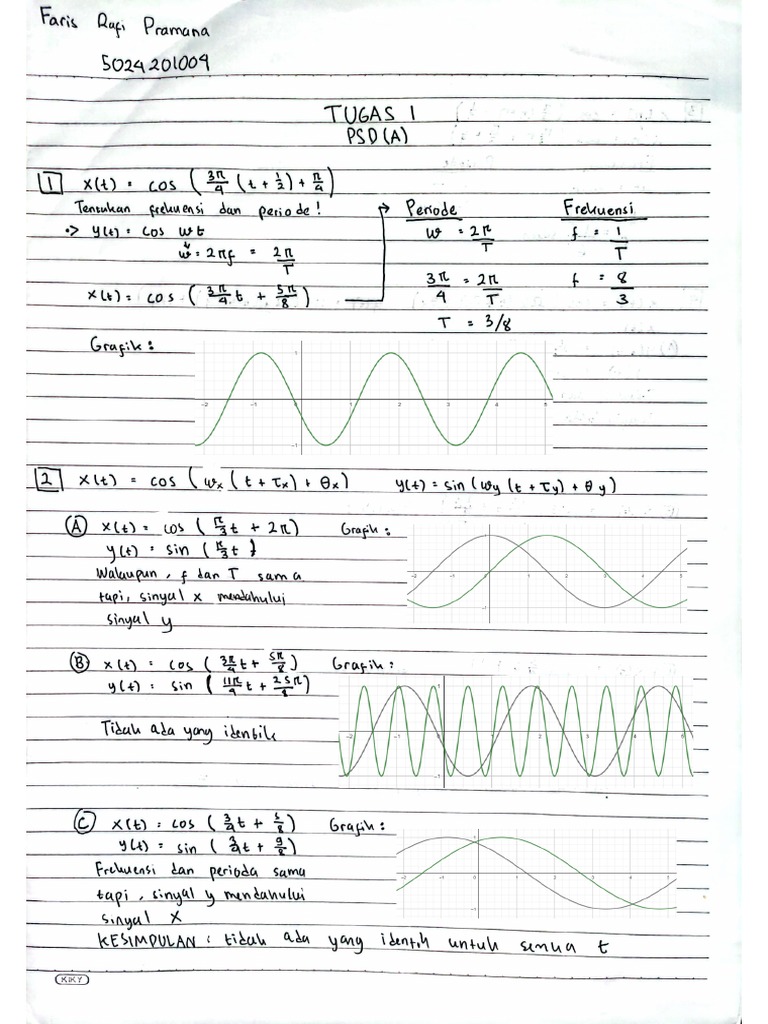 Faris Rafi Pramana
5024201009
TUGAS 1
PSD(A)
1 x(t) = cos (3π/4 (t + 1/2) + π/4)
Tentukan frekuensi dan periode!
•> y(t) = cos wt
w = 2πf = 2π/T
x(t) = cos (3π/4 t + 5π/8)
Periode
w = 2π/T
3π/4 = 2π/T
T = 3/8
Frekuensi
f = 1/T
f = 8/3
Grafik :
-2 -1 1 2 3 4 5
1
-1
2 x(t) = cos (ωx (t + τx) + θx) y(t) = sin (ωy (t + τy) + θy)
A x(t) = cos (π/3 t + 2π) Grafik :
y(t) = sin (π/3 t)
Walaupun, f dan T sama
tapi, sinyal x mendahului
sinyal y
B x(t) = cos (3π/4 t + 5π/8) Grafik :
y(t) = sin (11π/4 t + 25π/8)
Tidak ada yang identik
C x(t) = cos (3/4 t + 5/8) Grafik :
y(t) = sin (3/4 t + 9/8)
Frekuensi dan perioda sama
tapi, sinyal y mendahului
sinyal x
KESIMPULAN : tidak ada yang identik untuk semua t
KIKY